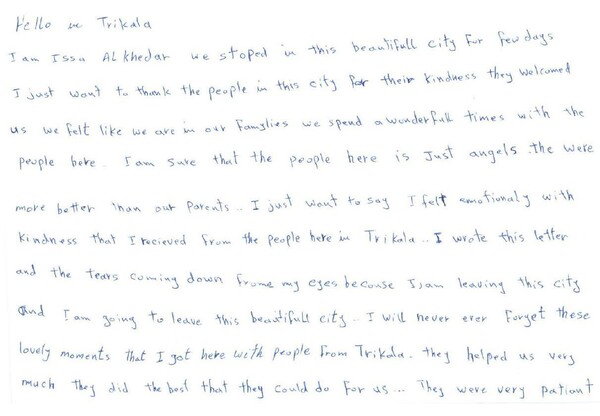 Hello we Trikala
I am Issa Al Khedar we stoped in this beautifull city for few days
I just want to thank the people in this city for their kindness they welcomed
us we felt like we are in our famylies we spend a wonderfull times with the
people here. I am sure that the people here is Just angels the were
more better than our parents.. I just want to say I felt emotionaly with
kindness that I recieved from the people here in Trikala.. I wrote this letter
and the tears coming down frome my eyes because I am leaving this city
and I am going to leave this beautifull city.. I will never ever forget these
lovely moments that I got here with people from Trikala. they helped us very
much they did the best that they could do for us... They were very patiant